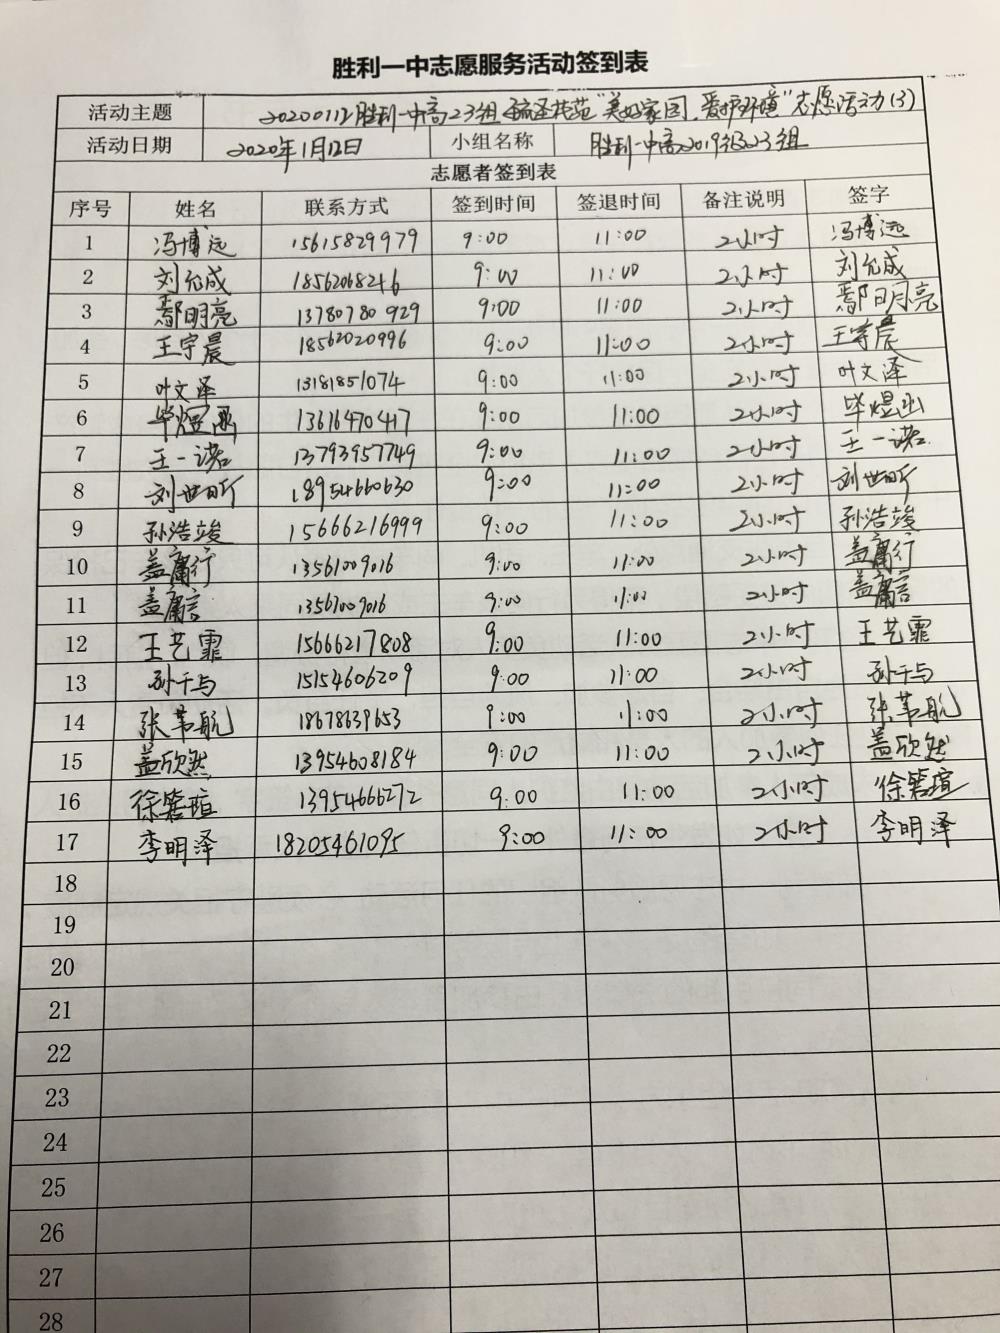 胜利一中志愿服务活动签到表
活动主题 20200112胜利一中高23组 "美好家园，爱护环境"志愿活动(3)
活动日期 2020年1月12日 小组名称 胜利一中高2019级23组
志愿者签到表
序号 姓名 联系方式 签到时间 签退时间 备注说明 签字
1 冯博远 15615829979 9:00 11:00 2小时 冯博远
2 刘允成 18562068246 9:00 11:00 2小时 刘允成
3 鄢明亮 13780780929 9:00 11:00 2小时 鄢明亮
4 王宇晨 18562020996 9:00 11:00 2小时 王宇晨
5 叶文泽 13181851074 9:00 11:00 2小时 叶文泽
6 毕煜函 13616470417 9:00 11:00 2小时 毕煜函
7 王一诺 13793957749 9:00 11:00 2小时 王一诺
8 刘世昕 18954660630 9:00 11:00 2小时 刘世昕
9 孙浩竣 15666216999 9:00 11:00 2小时 孙浩竣
10 盖庸行 13561009016 9:00 11:00 2小时 盖庸行
11 盖庸言 13561009016 9:00 11:00 2小时 盖庸言
12 王艺霏 15666217808 9:00 11:00 2小时 王艺霏
13 孙千与 15154606209 9:00 11:00 2小时 孙千与
14 张苇航 18678639653 9:00 11:00 2小时 张苇航
15 盖欣然 13954608184 9:00 11:00 2小时 盖欣然
16 徐箬瑄 13954666272 9:00 11:00 2小时 徐箬瑄
17 李明泽 18205461095 9:00 11:00 2小时 李明泽
18
19
20
21
22
23
24
25
26
27
28